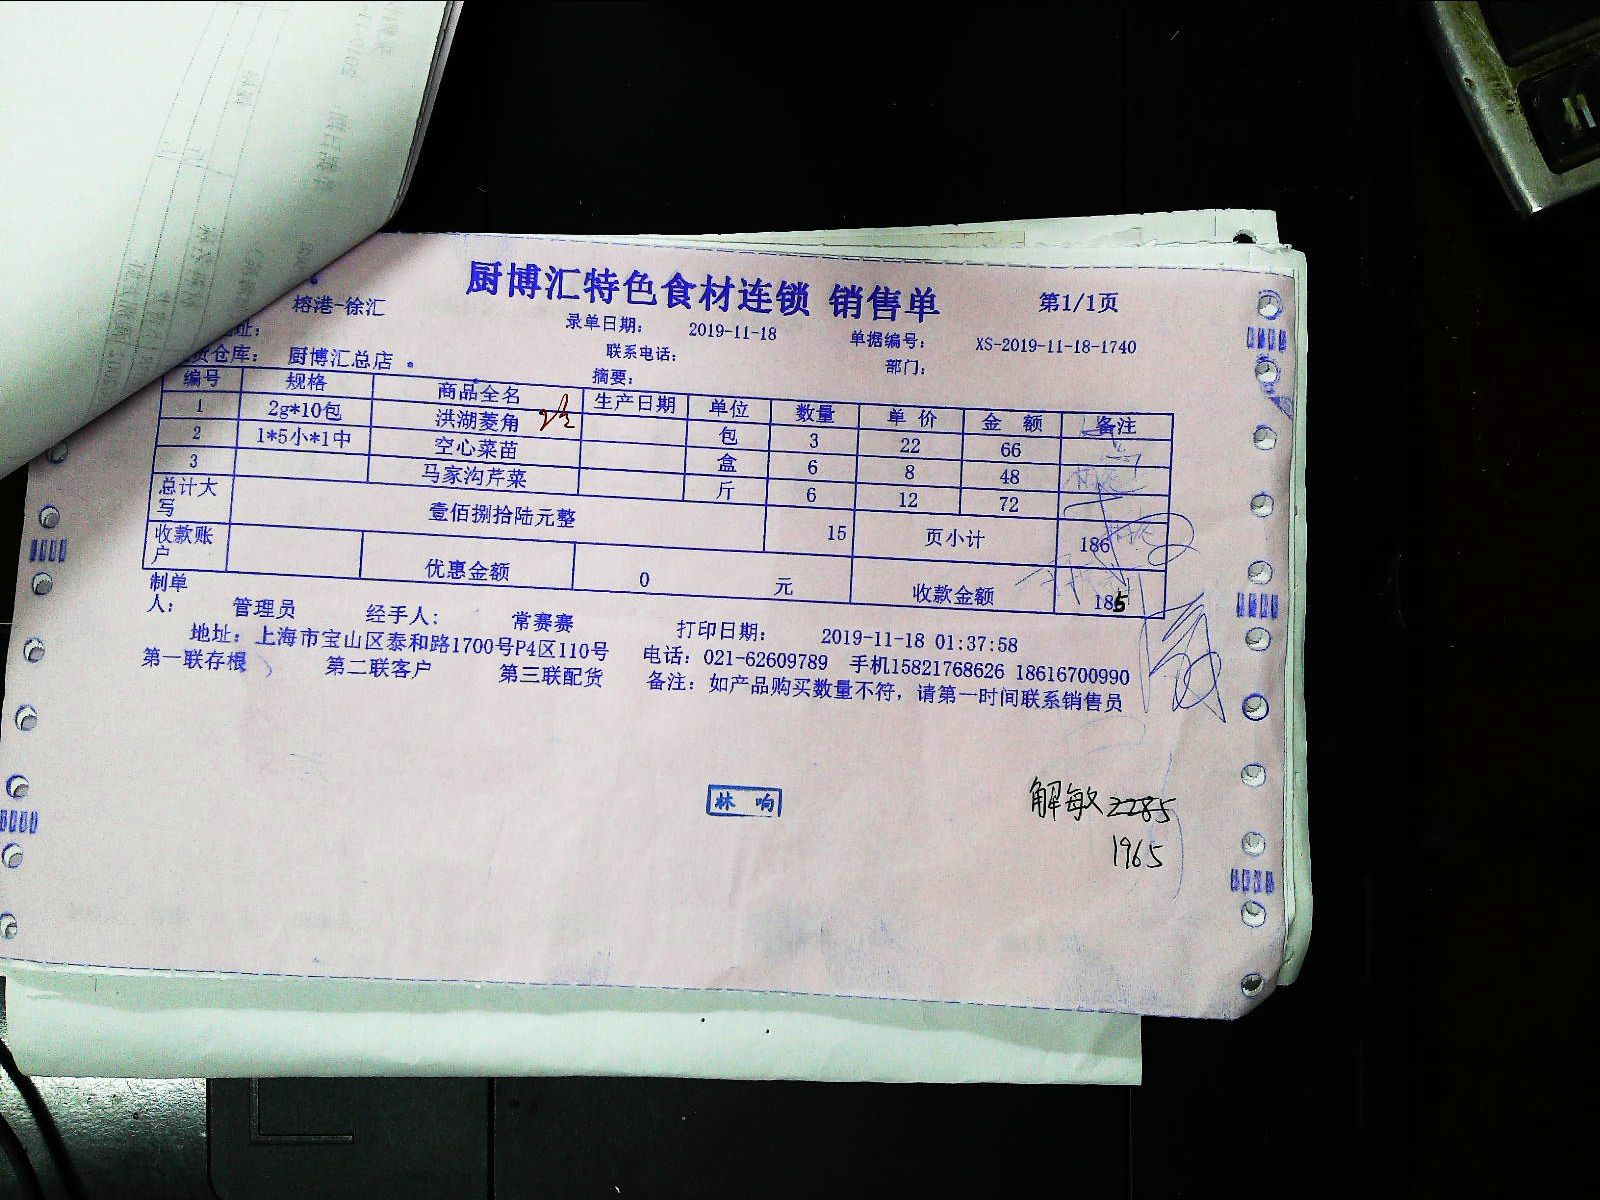 厨博汇特色食材连锁 销售单 第1/1页
榕港-徐汇 录单日期: 2019-11-18 单据编号: XS-2019-11-18-1740
址: 联系电话: 部门:
货仓库: 厨博汇总店 摘要:
编号 规格 商品全名 生产日期 单位 数量 单价 金额 备注
1 2g*10包 洪湖菱角 包 3 22 66
2 1*5小*1中 空心菜苗 盒 6 8 48
3 马家沟芹菜 斤 6 12 72
总计大写 壹佰捌拾陆元整 15 页小计 186
收款账户 优惠金额 0 元 收款金额 185
制单人: 管理员 经手人: 常赛赛 打印日期: 2019-11-18 01:37:58
地址: 上海市宝山区泰和路1700号P4区110号 电话: 021-62609789 手机15821768626 18616700990
第一联存根 第二联客户 第三联配货 备注: 如产品购买数量不符, 请第一时间联系销售员
林 响
解敏 2285
1965